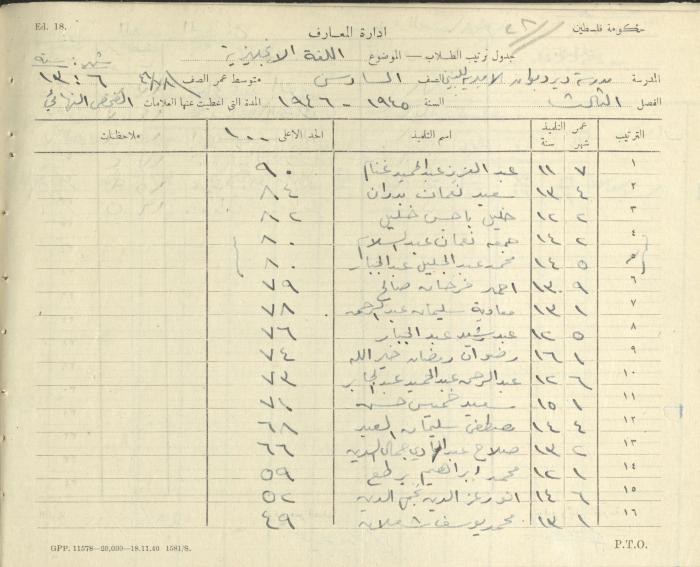 Ed. 18.
٢٢/
حكومة فلسطين
ادارة المعارف
جدول ترتيب الطلاب — الموضوع اللغة الانجليزية
شهر : سنة
المدرسة مدرسة دير ديوان الاميرية للبنين الصف السادس متوسط عمر الصف ٦ : ١٣
الفصل الثالث السنة ١٩٤٥ - ١٩٤٦ المدة التي اعطيت عنها العلامات الفحص النهائي
الترتيب عمر التلميذ شهر سنة اسم التلميذ الحد الاعلى ١٠٠ ملاحظات
١ ٧ ١١ عبد العزيز عبد الحميد غنام ٩٠
٢ ٤ ١٣ سعيد نعمان بدوان ٨٤
٣ ٢ ١٢ خليل حسن خليل ٨٢
٤ ٢ ١٤ جمعه نعمان عبد السلام ٨٠
٥ ٥ ١٤ محمد عبد الجليل عبد الجبار ٨٠
٦ ٩ ١٣ احمد فرحان صالح ٧٩
٧ ١ ١٣ معاوية سليمان عبد الرحمن ٧٨
٨ ٥ ١٢ عبد رشيد عبد الجبار ٧٦
٩ ١ ١٦ رضوان رمضان خير الله ٧٤
١٠ ٦ ١٢ عبد الرحمن عبد الحميد عبد الجابر ٧٣
١١ ١ ١٥ سعيد خميس حسن ٧١
١٢ ٤ ١٤ مصطفى سليمان العبد ٦٨
١٣ ٢ ١٣ صلاح عبد الهادي جمال الدين ٦٦
١٤ ١ ١٢ محمد ابراهيم ٥٩
١٥ ٦ ١٤ انور عز الدين محي الدين ٥٢
١٦ ١ ١٣ محمد يوسف شعلان ٤٩
GPP. 11578—20,000—18.11.40 1581/S.
P.T.O.